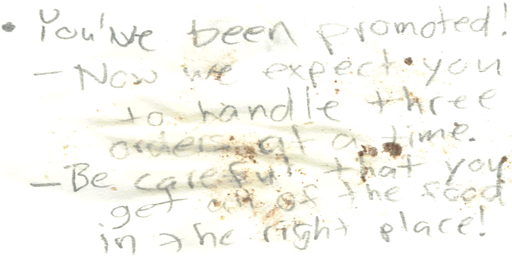 • You've been promoted!
- Now we expect you
to handle three
orders at a time.
- Be careful that you
get all of the food
in the right place!